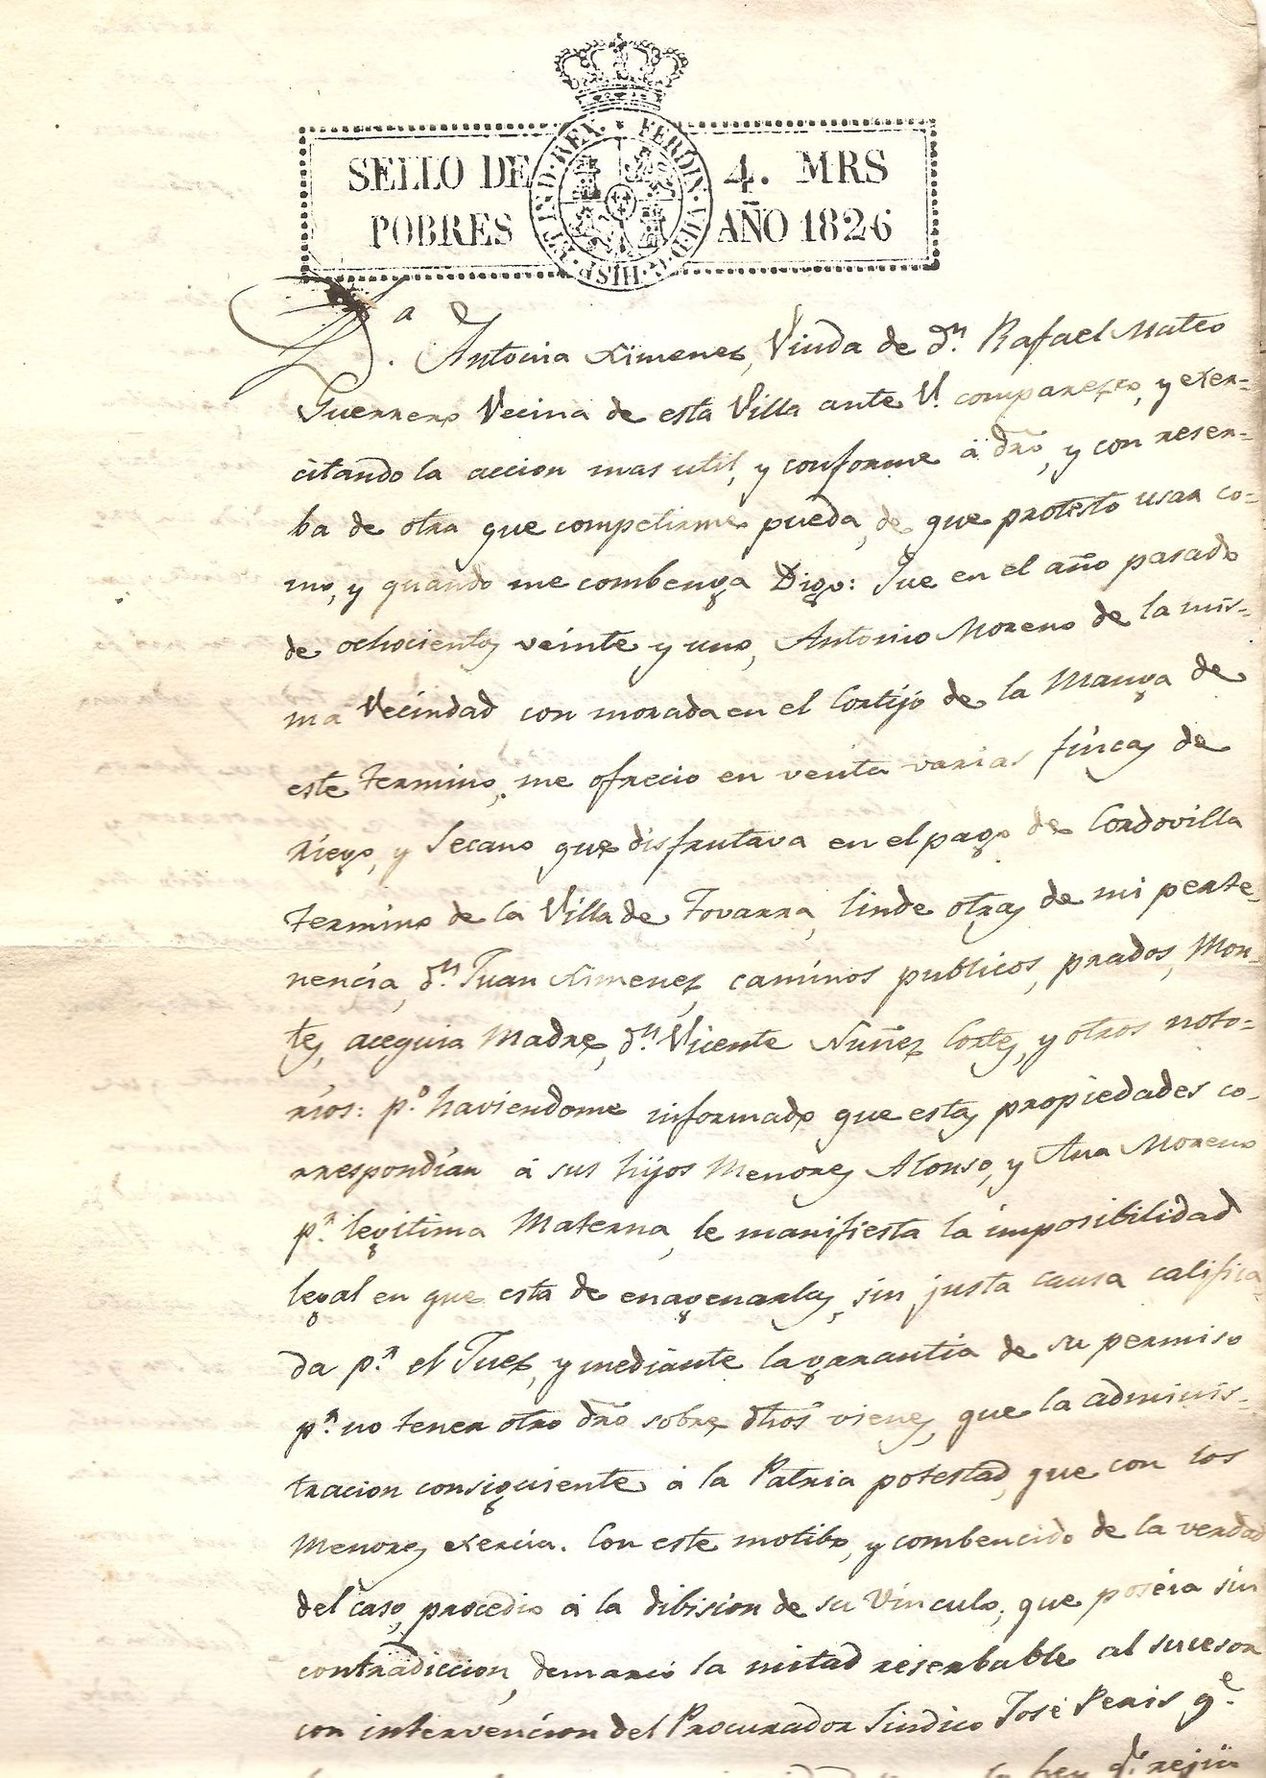 SELLO DE 4. MRS
POBRES AÑO 1826
FERDIN. VII. D. G. HISP. ET IND. REX.
D.ª Antonia Ximenez, Viuda de Dn. Rafael Mateo
Guerrero Vecina de esta Villa ante V. comparezco, y exer=
citando la accion mas util, y conforme à dro, y con reser=
ba de otra que competirme pueda, de que protesto usar co=
mo, y quando me combenga Digo: Que en el año pasado
de ochocientos veinte y uno, Antonio Moreno de la mis=
ma Vecindad con morada en el Cortijo de la Manga de
este termino, me ofrecio en venta varias fincas de
riego, y Secano que disfrutava en el pago de Cordovilla
termino de la Villa de Tovarra, linde otras de mi perte=
nencia, Dn. Juan Ximenez, caminos publicos, prados, Mon=
tes, acequia Madre, Dn. Vicente Nuñez Cortes, y otros noto=
rios: p.º haviendome informado que estas propiedades co=
rrespondian á sus hijos Menores Alonso, y Ana Moreno
p.r legitima Materna, le manifiesta la imposibilidad
legal en que esta de enagenarlas, sin justa causa califica=
da p.r el Juez, y mediante la garantia de su permiso
p.r no tener otro dro sobre dhos vienes, que la adminis=
tracion consiguiente á la Patria potestad, que con los
Menores exercia. Con este motibo, y combencido de la verdad
del caso, procedio á la dibision de su Vinculo, que poseia sin
contradiccion, demarcó la mitad reserbable al sucesor
con intervencion del Procurador Sindico José Peris q.e
la Ley q.e rejia